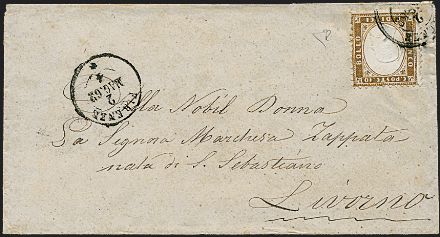 FRANCO
BOLLO
POSTE
C. DIECI 10
FIRENZE
2
MAG. 62
4
Alla Nobil Donna
La Signora Marchesa Zappata
nata di S. Sebastiano
Livorno